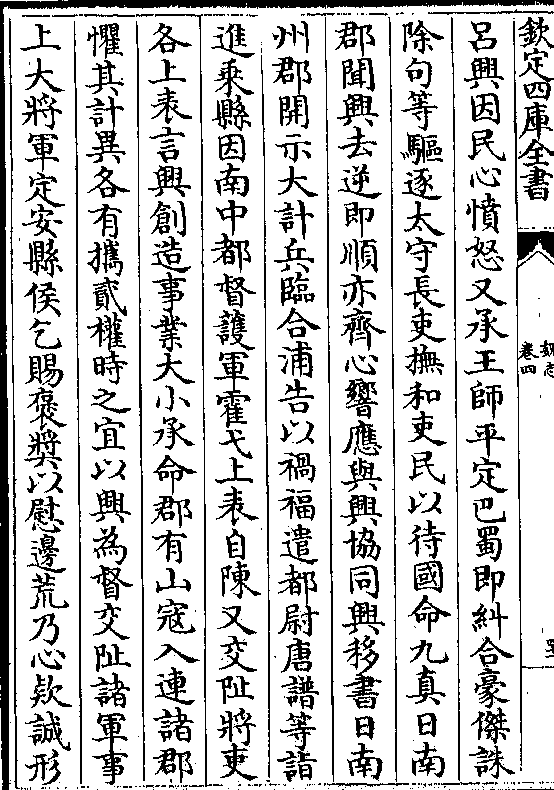 欽定四庫全書
魏志
卷四
呂興因民心憤怒又承王師平定巴蜀即糾合豪傑誅
除句等驅逐太守長吏撫和吏民以待國命九真日南
郡聞興去逆即順亦齊心響應與興協同興移書日南
州郡開示大計兵臨合浦告以禍福遣都尉唐譜等詣
進乘縣因南中都督護軍霍弋上表自陳又交阯將吏
各上表言興創造事業大小承命郡有山寇入連諸郡
懼其計異各有攜貳權時之宜以興為督交阯諸軍事
上大將軍定安縣侯乞賜褒奬以慰邊荒乃心欵誠形